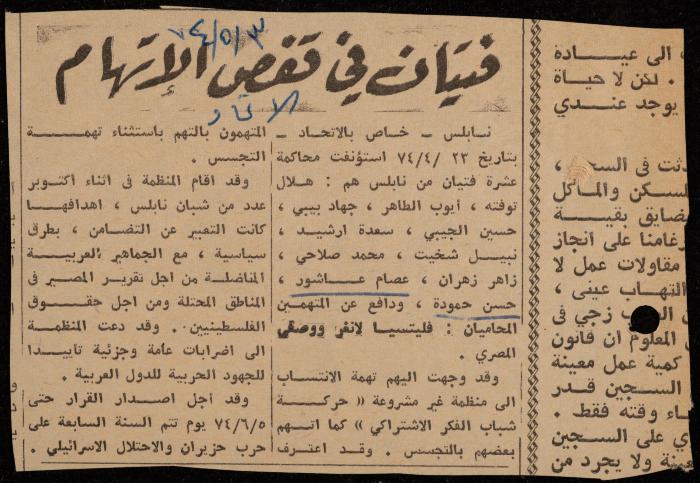 ٧٤/٥/٣
فتيان في قفص الإتهام
الاتحاد
نابلس - خاص بالاتحاد -
بتاريخ ٢٣ /٧٤/٤ استؤنفت محاكمة
عشرة فتيان من نابلس هم : هلال
توفته ، أيوب الطاهر ، جهاد بيبي ،
حسين الجيبي ، سعدة ارشيد ،
نبيل شخيت ، محمد صلاحي ،
زاهر زهران ، عصام عاشور ،
حسن حمودة ، ودافع عن المتهمين
المحاميان : فليتسيا لانغر ووصفي
المصري .
وقد وجهت اليهم تهمة الانتساب
الى منظمة غير مشروعة « حركة
شباب الفكر الاشتراكي » كما اتهم
بعضهم بالتجسس . وقد اعترف
المتهمون بالتهم باستثناء تهمة
التجسس .
وقد اقام المنظمة في اثناء أكتوبر
عدد من شبان نابلس ، اهدافها
كانت التعبير عن التضامن ، بطرق
سياسية ، مع الجماهير العربية
المناضلة من اجل تقرير المصير في
المناطق المحتلة ومن اجل حقوق
الفلسطينيين . وقد دعت المنظمة
الى اضرابات عامة وجزئية تأييدا
للجهود الحربية للدول العربية .
وقد أجل اصدار القرار حتى
٧٤/٦/٥ يوم تتم السنة السابعة على
حرب حزيران والاحتلال الاسرائيلي .
الى عيادة
. لكن لا حياة
يوجد عندي
دثت في السجن ،
سكن والمأكل
ضايق بقية
رغامنا على انجاز
مقاولات عمل لا
التهاب عيني ،
زجي في
المعلوم ان قانون
كمية عمل معينة
السجين قدر
اء وقته فقط .
ى على السجين
ينة ولا يجرد من